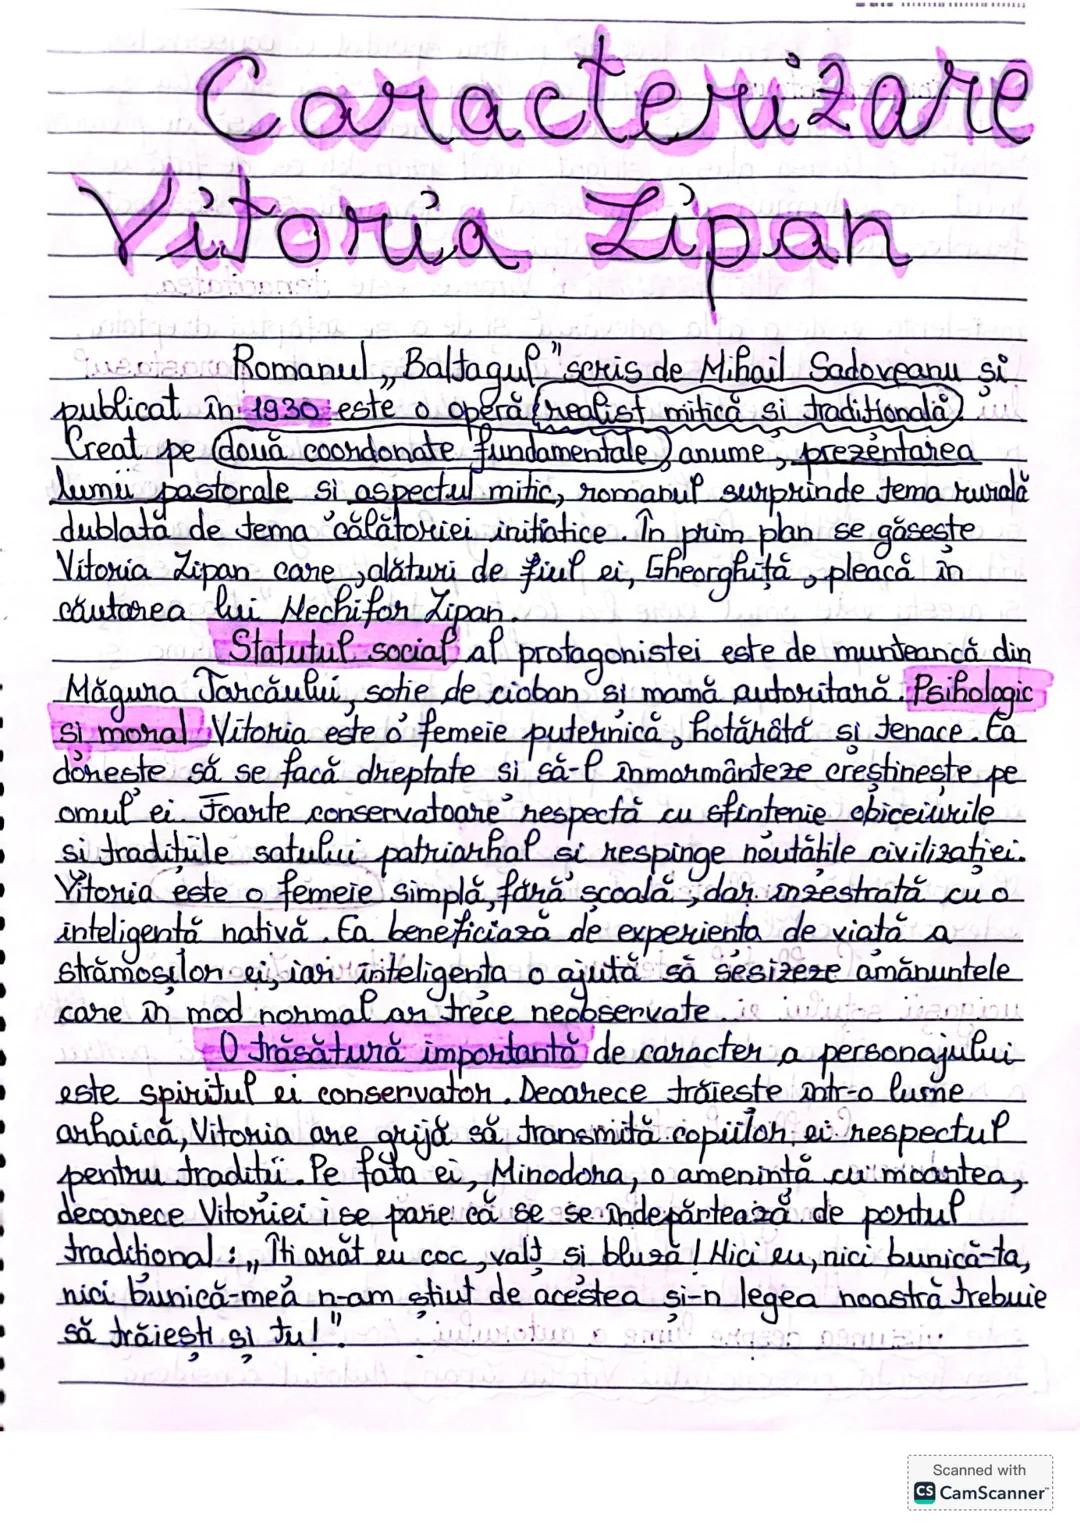 Caracterizare
Vitoria Lipan
Romanul „Baltagul" scris de Mihail Sadoveanu și
publicat în 1930 este o operă realist mitică și tradițională.
Creat pe două coordonate fundamentale, anume, prezentarea
lumii pastorale si aspectul mitic, romanul surprinde tema rurală
dublată de tema călătoriei inițiatice. În prim plan se găsește
Vitoria Lipan care, alături de fiul ei, Gheorghiță, pleacă în
căutarea lui Nechifor Lipan.
Statutul social al protagonistei este de munteancă din
Măgura Tarcăului, soție de cioban și mamă autoritară. Psihologic
și moral Vitoria este o femeie puternică, hotărâtă și tenace. Ea
dorește să se facă dreptate si să-l înmormânteze creștinește pe
omul ei. Foarte conservatoare respectă cu sfintenie obiceiurile
si tradițiile satului patriarhal și respinge noutățile civilizației.
Vitoria este o femeie simplă, fără școală, dar înzestrată cu o
inteligență nativă. Ea beneficiază de experiența de viață a
strămoșilor ei, iar inteligența o ajută să sesizeze amănuntele
care în mod normal ar trece neobservate.
O trăsătură importantă de caracter a personajului
este spiritul ei conservator. Deoarece trăiește într-o lume
arhaică, Vitoria are grijă să transmită copiilor ei respectul
pentru tradiții. Pe fata ei, Minodora, o amenință cu moartea,
deoarece Vitoriei i se pare că se se îndepărtează de portul
tradițional: „Îti arăt eu coc, valț și bluză! Nici eu, nici bunică-ta,
nici bunică-mea n-am știut de acestea și-n legea noastră trebuie
să trăiești și tu!".
Scanned with
CS CamScanner